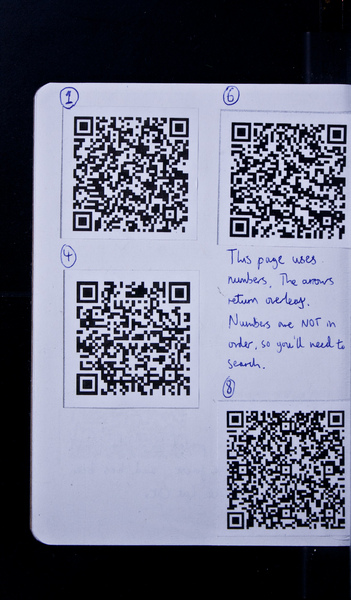 1
6
4
This page uses
numbers. The arrows
return overleaf.
Numbers are NOT in
order, so you'll need to
search.
8